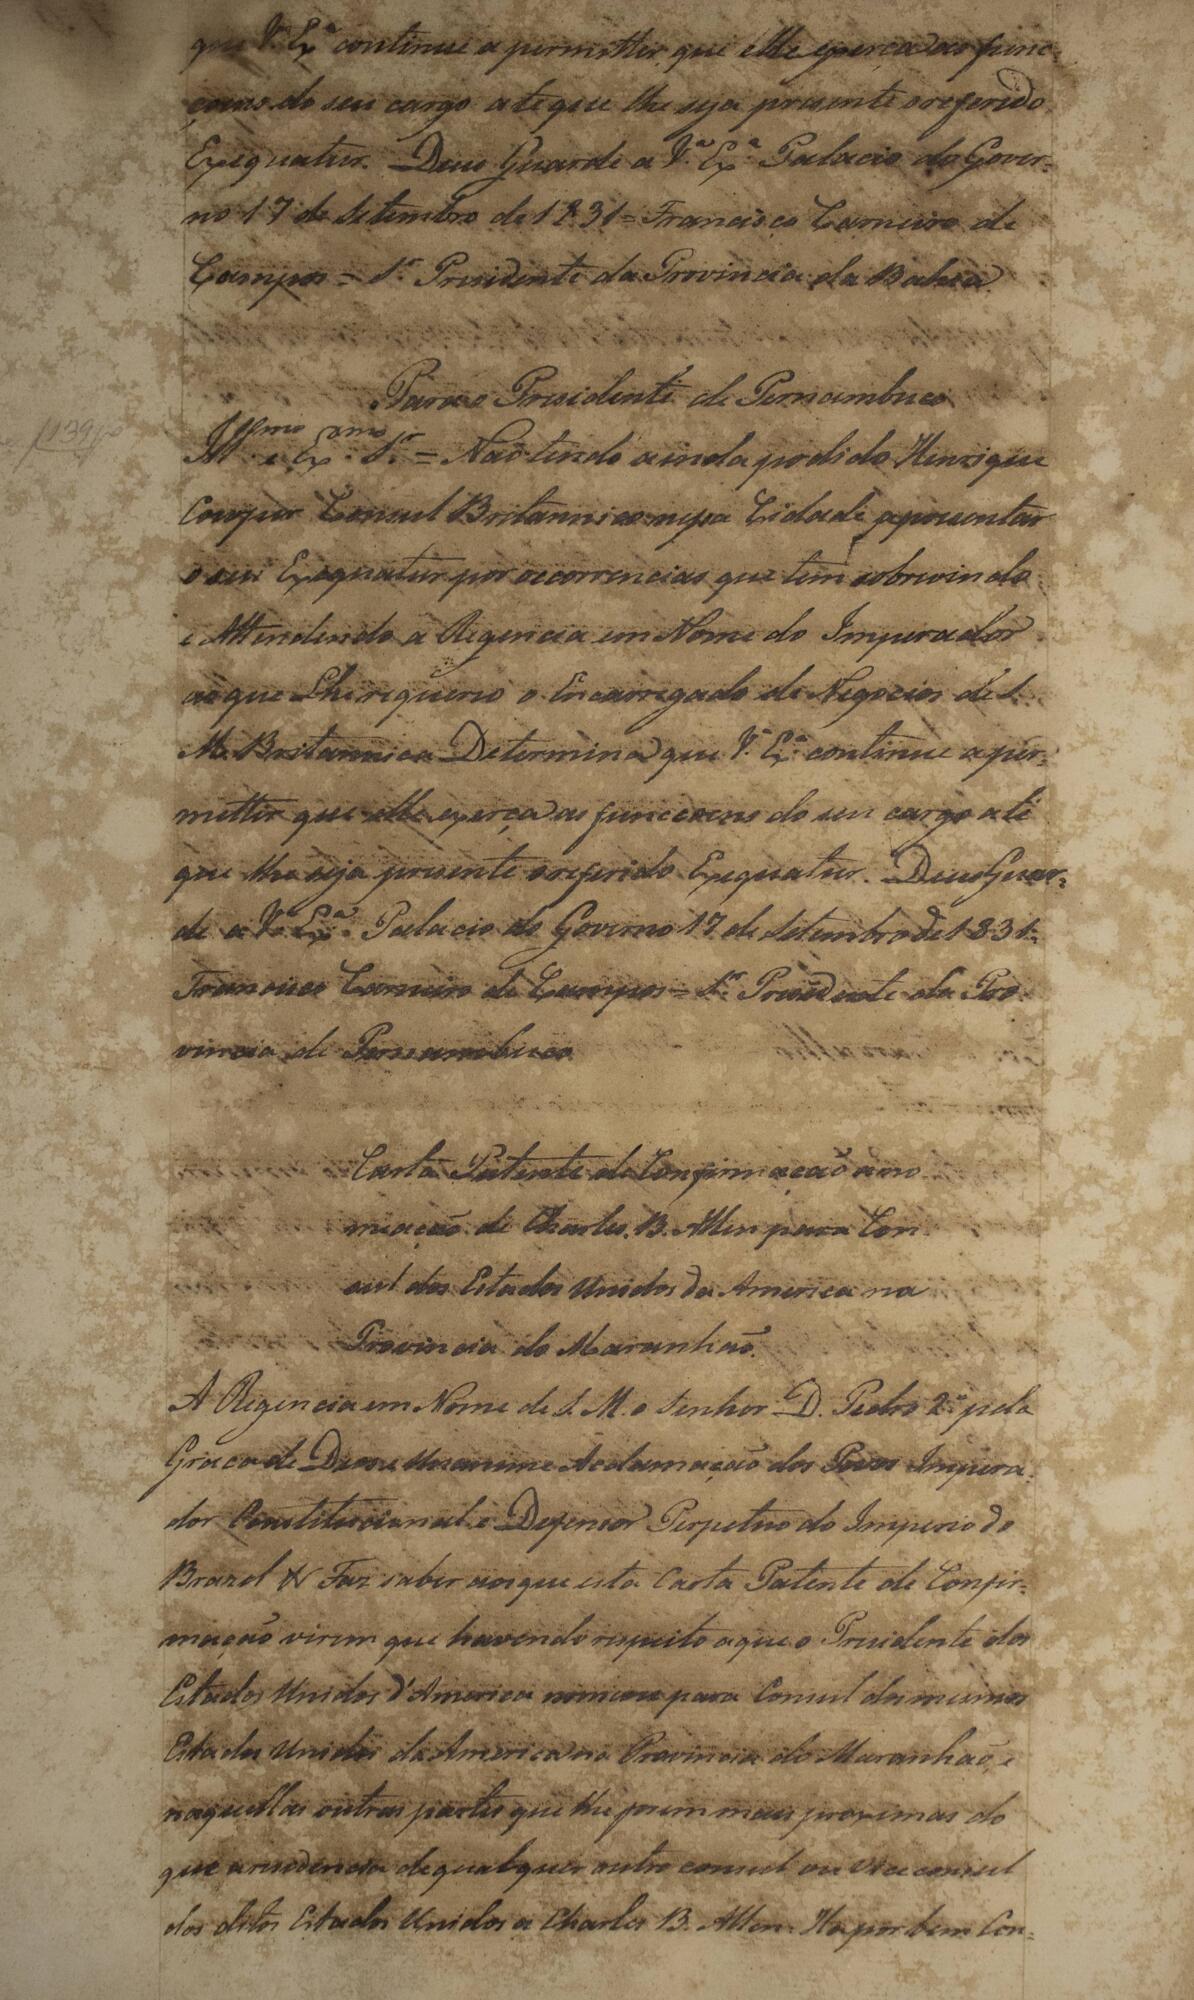 que V.ª Ex.ª continue a permittir que elle exerça as func-
çoens do seu cargo até que lhe seja presente o referido
Exequatur. Deus Guarde a V.ª Ex.ª Palacio do Gover-
no 17 de Setembro de 1831 = Francisco Carneiro de
Campos = Sr. Presidente da Provincia da Bahia
Para o Presidente de Pernambuco
Ill.mo e Ex.mo Sr. = Não tendo ainda podido Henrique
Cowper Consul Britannico nessa Cidade apresentar
o seu Exequatur por occorrencias que tem sobrevindo
e Attendendo a Regencia em Nome do Imperador
ao que Lhe requereo o Encarregado de Negocios de S.
M. Britannica Determina que V.ª Ex.ª continue a per-
mittir que elle exerça as funccoens do seu cargo até
que lhe seja presente o referido Exequatur. Deus Guar-
de a V.ª Ex.ª Palacio do Governo 17 de Setembro de 1831 =
Francisco Carneiro de Campos = Sr. Presidente da Pro-
vincia de Pernambuco
Carta Patente de Confirmação a no
meação de Charles B. Allen para Con
sul dos Estados Unidos da America na
Provincia do Maranhão.
A Regencia em Nome de S. M. o Senhor D. Pedro 2.º pela
Graca de Deos e Unanime Acclamação dos Povos Impera
dor Constitucional e Defensor Perpetuo do Imperio do
Brazil & Faz saber aos que esta Carta Patente de Confir-
mação virem que havendo respeito a que o Presidente dos
Estados Unidos d'America nomeou para Consul dos mesmos
Estados Unidos da America na Provincia do Maranhão, e
naquellas outras partes que lhe forem mais proximas do
que a residencia de qualquer outro consul ou Vice consul
dos ditos Estados Unidos a Charles B. Allen. Ha por bem Con-